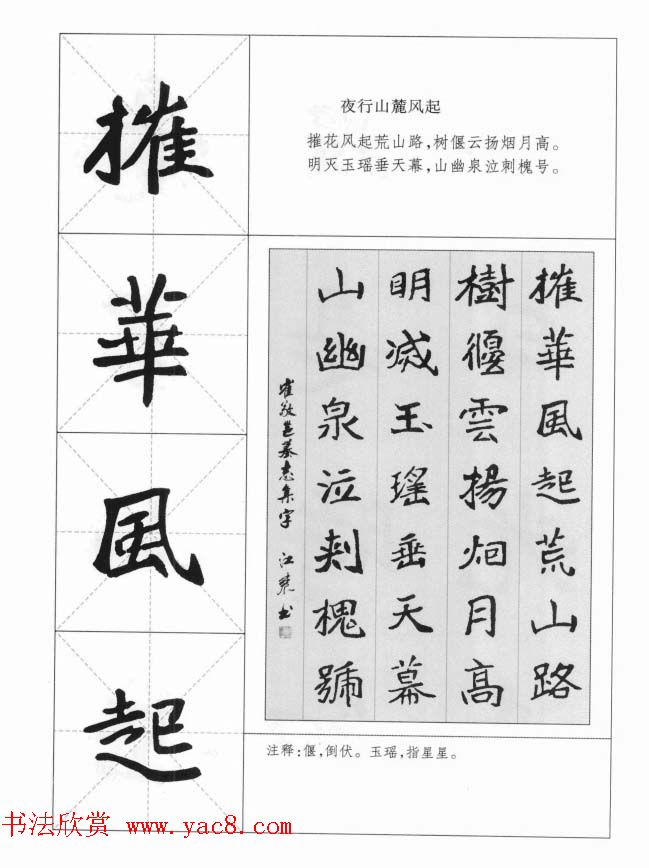 摧
華
風
起
夜行山麓风起
摧花风起荒山路，树偃云扬烟月高。
明灭玉瑶垂天幕，山幽泉泣刺槐号。
摧華風起荒山路
樹偃雲揚烟月高
明滅玉瑤垂天幕
山幽泉泣刺槐號
崔敬邕墓志集字 江 书
注释：偃，倒伏。玉瑶，指星星。
书法欣赏 www.yac8.com